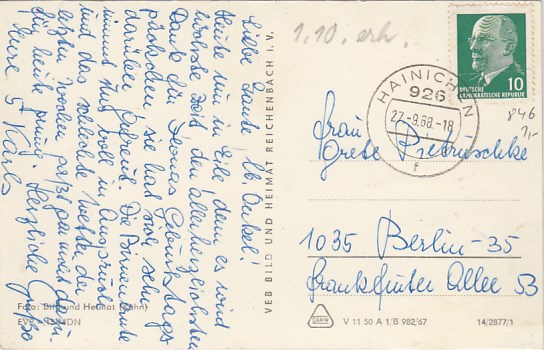 Liebe Tante, lb. Onkel!
Heute nur in Eile, denn es wird
höchste Zeit den allerherzlichsten
Dank für Deinen Geburtstags
zu sagen, sie hat sich sehr
darüber gefreut. Die
nimmt uns voll in Anspruch
und das schlechte Wetter der
letzten Wochen
für heute. Herzliche Grüße
Eure 5 Karls
Foto: Bild und Heimat
VEB BILD UND HEIMAT REICHENBACH I. V.
1.10. erh.
DEUTSCHE DEMOKRATISCHE REPUBLIK
10
HAINICHEN
926
27.-9.68.-18
f
846
Frau
Grete Pietruschke
1035 Berlin-35
Frankfurter Allee 53
V 11 50 A 1/B 982/67
14/2877/1